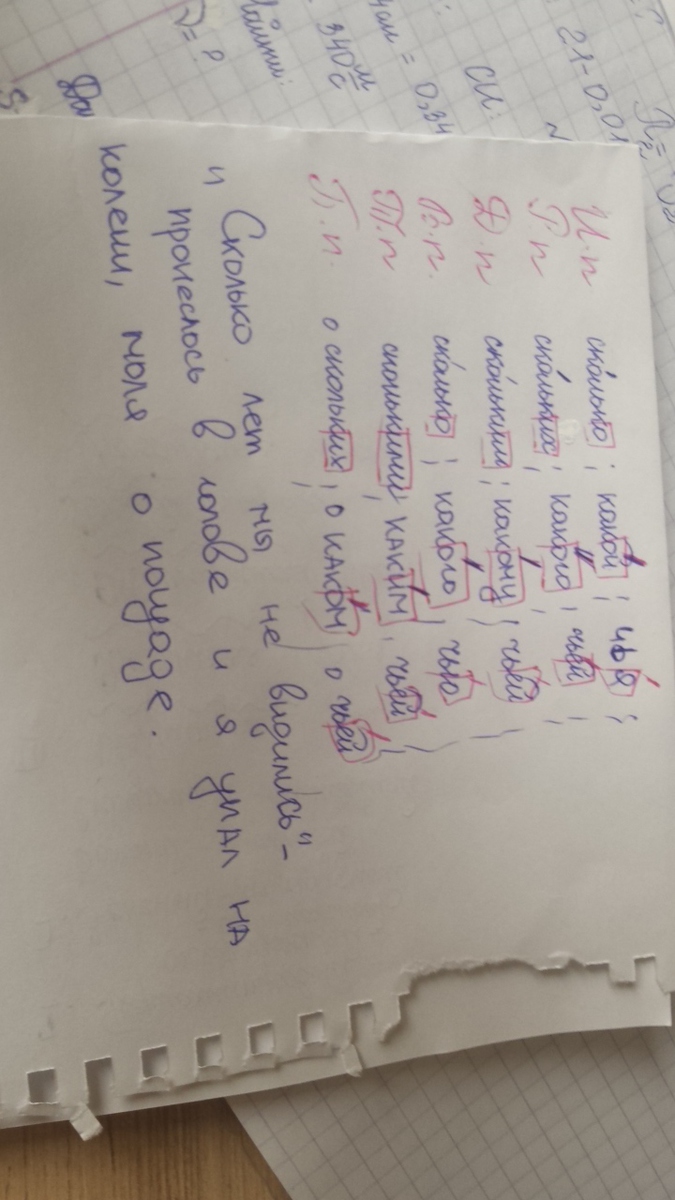 И.п сколько; какой; чья;
Г.п скольких; какого; чьей;
Д.п скольким; какому; чьей;
В.п. сколько; какого; чью
Т.п сколькими; каким; чьей;
П.п. о скольких; о каком; о чьей;
Сколько лет мы не виделись" –
и пронеслось в голове и я упал на
колени, моля о пощаде.
21-0,01
СИ:
= 0,34
340 м/с
Найти:
= ?